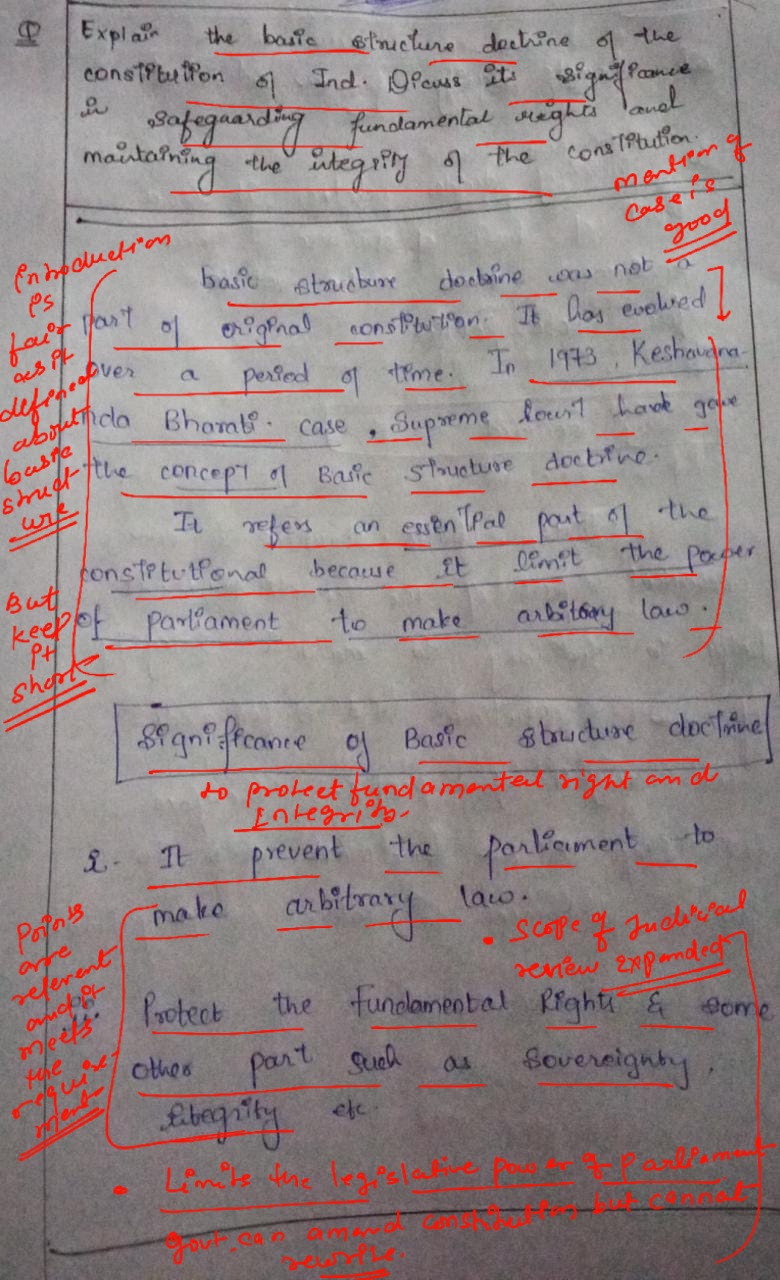 Q Explain the basic structure doctrine of the
constitution of Ind. Dicuss its significance
in safeguarding fundamental rights and
maintaining the integrity of the constitution.
mention of
case is
good
Introduction
is
fair
as it
defined
about
basic
struct-
ure
But
keep
it
short
basic structure doctrine was not a
part of original constitution. It has evolved
over a period of time. In 1973, Keshavana-
nda Bharati case, Supreme Court have gave
the concept of Basic structure doctrine.
It refers an essential part of the
constitutional because it limit the power
of parliament to make arbitary law.
Significance of Basic structure doctrine
to protect fundamental right and
Integrity.
i. It prevent the parliament to
make arbitrary law.
• Scope of Judicial
review expanded
Points
are
referent
and it
meets
the
require-
ment
Protect the fundamental Rights & some
other part such as Sovereignty,
integrity etc.
• Limits the legislative power of parliament
govt. can amend constitution but cannot
rewrite.